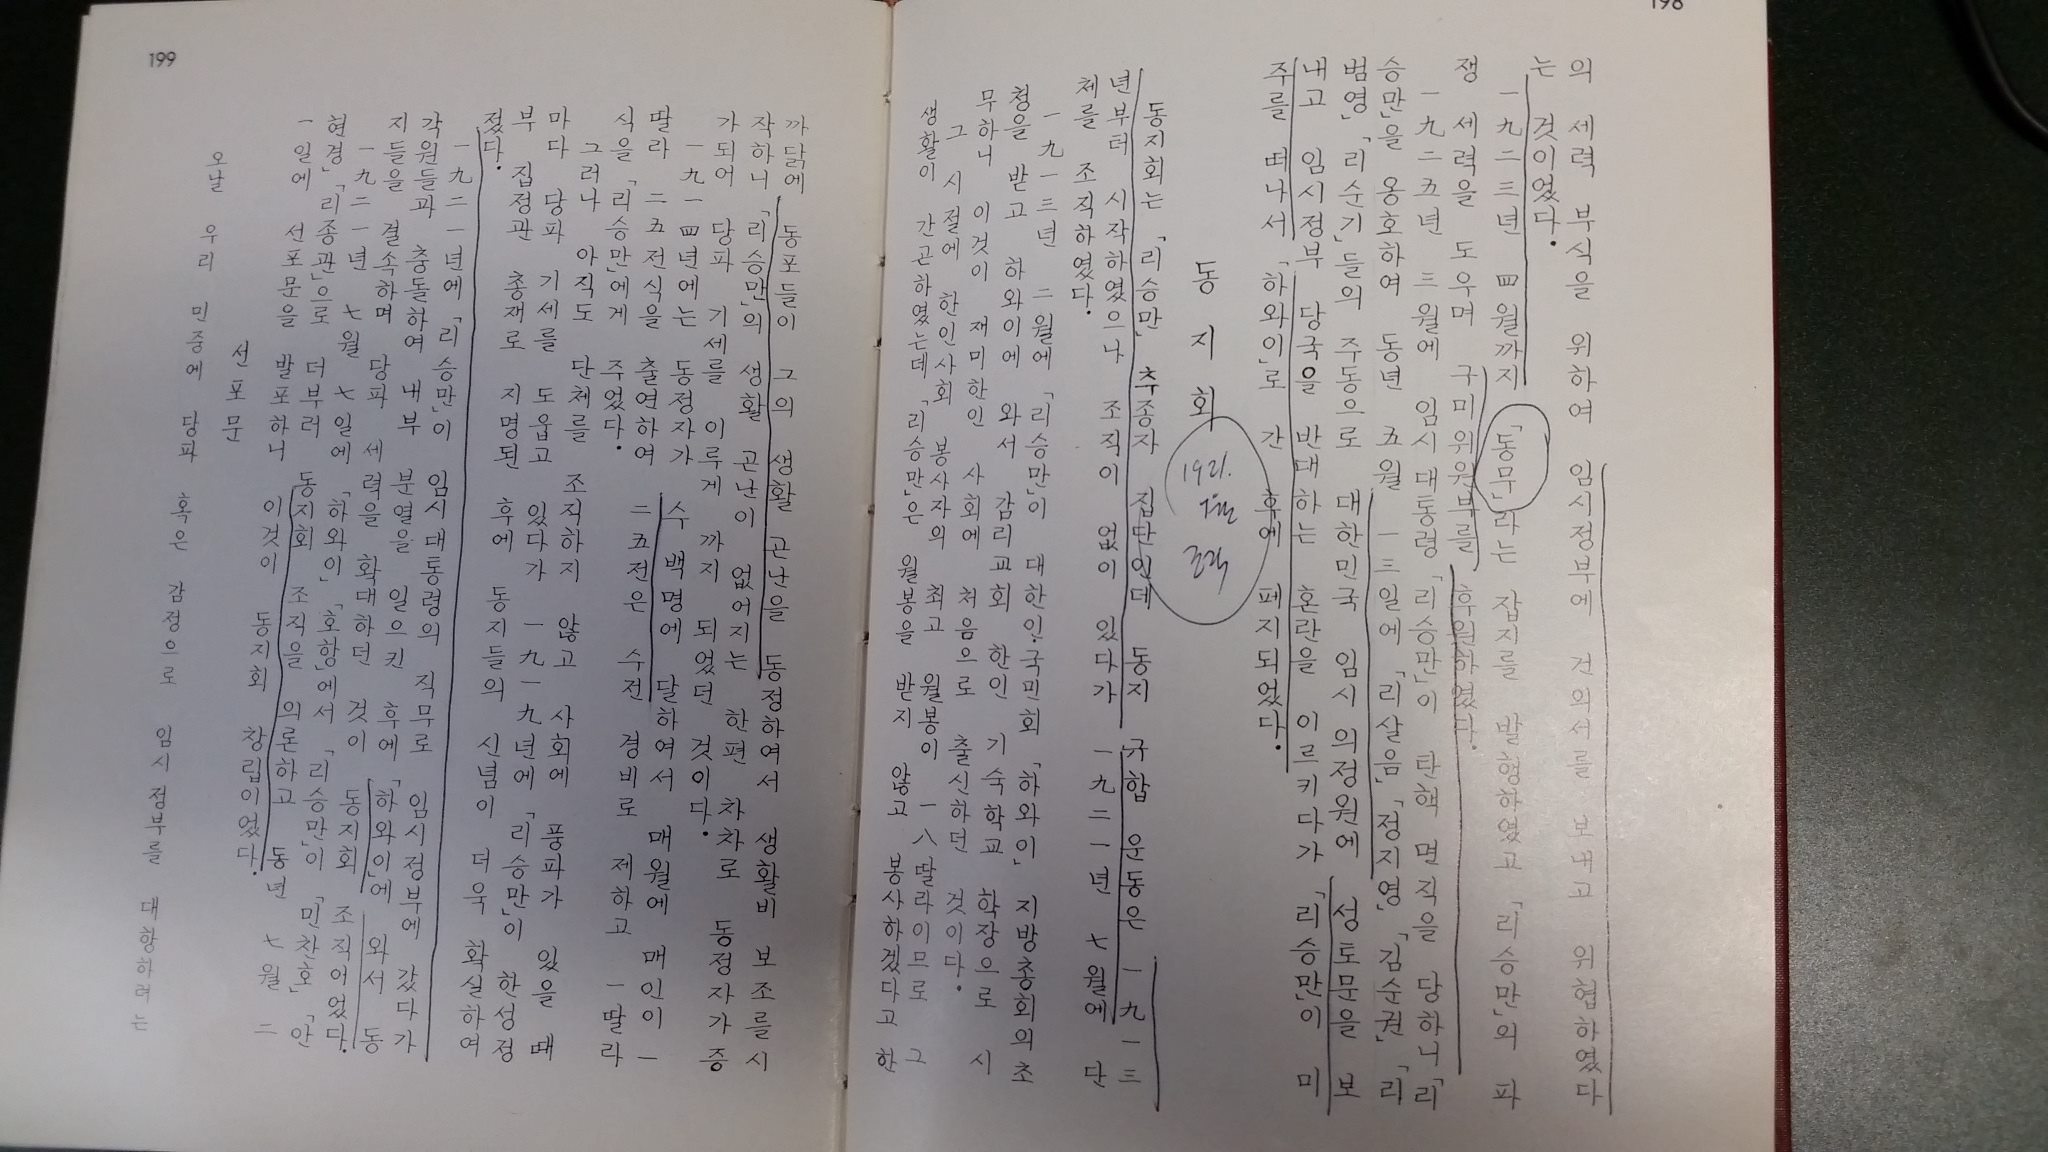 198
의 세력 부식을 위하여 임시정부에 건의서를 보내고 위협하였다
는 것이었다.
一九二三년 四월까지 「동무」라는 잡지를 발행하였고 「리승만」의 파
쟁 세력을 도우며 구미위원부를 후원하였다.
一九二五년 三월에 임시 대통령 「리승만」이 탄핵 면직을 당하니 「리
승만」을 옹호하여 동년 五월 一三일에 「리살음」 「정지영」 「김순권」 「리
범영」 「리순기」들의 주동으로 대한민국 임시 의정원에 성토문을 보
내고 임시정부 당국을 반대하는 혼란을 이르키다가 「리승만」이 미
주를 떠나서 「하와이」로 간 후에 폐지되었다.
동지회
1921.
7월
조직
동지회는 「리승만」 추종자 집단인데 동지 규합 운동은 一九一三
년부터 시작하였으나 조직이 없이 있다가 一九二一년 七월에 단
체를 조직하였다.
一九一三년 二월에 「리승만」이 대한인국민회 「하와이」 지방총회의 초
청을 받고 하와이에 와서 감리교회 한인 기숙학교 학장으로 시
무하니 이것이 재미한인 사회에 처음으로 출신하던 것이다.
그 시절에 한인사회 봉사자의 최고 월봉이 一八딸라이므로 그
생활이 간곤하였는데 「리승만」은 월봉을 받지 않고 봉사하겠다고 한
199
까닭에 동포들이 그의 생활 곤난을 동정하여서 생활비 보조를 시
작하니 「리승만」의 생활 곤난이 없어지는 한편 차차로 동정자가 증
가되어 당파 기세를 이루게 까지 되었던 것이다.
一九一四년에는 동정자가 수백명에 달하여서 매월에 매인이 一
딸라 二五전식을 출연하여 二五전은 수전 경비로 제하고 一딸라
식을 「리승만」에게 주었다.
그러나 아직도 단체를 조직하지 않고 사회에 풍파가 있을 때
마다 당파 기세를 도웁고 있다가 一九一九년에 「리승만」이 한성정
부 집정관 총재로 지명된 후에 동지들의 신념이 더욱 확실하여
졌다.
一九二一년에 「리승만」이 임시대통령의 직무로 임시정부에 갔다가
각원들과 충돌하여 내부 분열을 일으킨 후에 「하와이」에 와서 동
지들을 결속하며 당파 세력을 확대하던 것이 동지회 조직이었다.
一九二一년 七월 七일에 「하와이」 「호항」에서 「리승만」이 「민찬호」 「안
현경」 「리종관」으로 더부러 동지회 조직을 의론하고 동년 七월 二
一일에 선포문을 발포하니 이것이 동지회 창립이었다.
선포문
오날 우리 민중에 당파 혹은 감정으로 임시 정부를 대항하려는